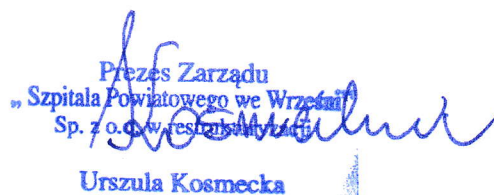 Prezes Zarządu
„Szpitala Powiatowego we Wrześni”
Sp. z o.o. w restrukturyzacji
Urszula Kosmecka